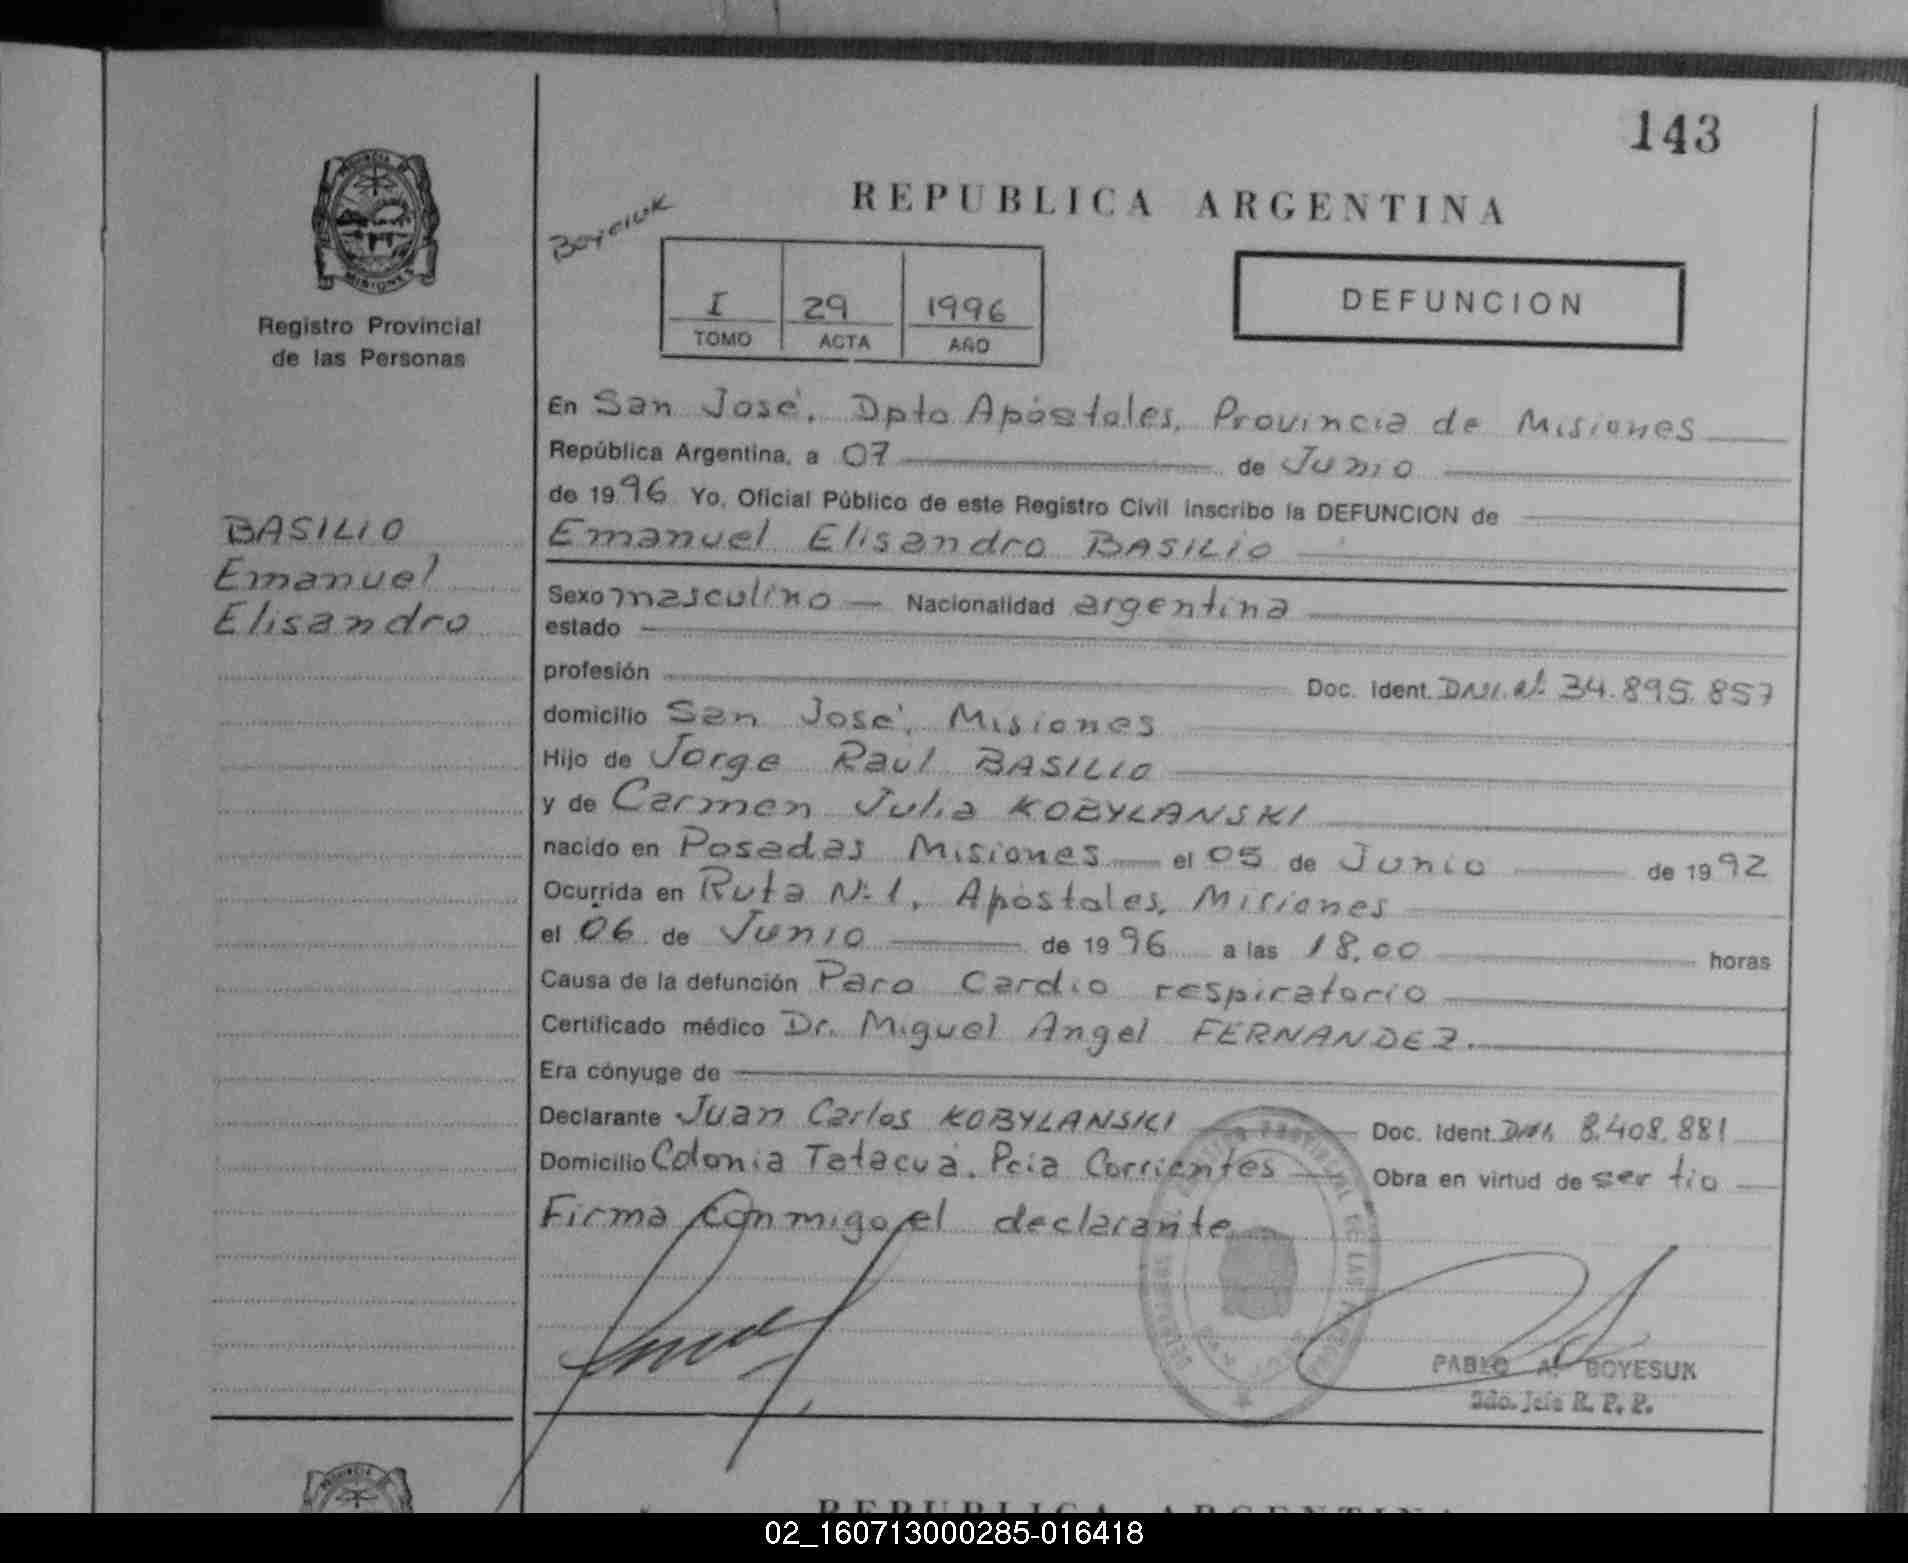 143
REPUBLICA ARGENTINA
PROVINCIA DE
MISIONES
Registro Provincial
de las Personas
I 29 1996
TOMO ACTA AÑO
DEFUNCION
En San José, Dpto Apóstoles, Provincia de Misiones
República Argentina, a 07 de Junio
de 1996 Yo, Oficial Público de este Registro Civil inscribo la DEFUNCION de
BASILIO
Emanuel
Elisandro
Emanuel Elisandro BASILIO
Sexo masculino Nacionalidad argentina
estado
profesión Doc. Ident. DNI. Nº 34.895.857
domicilio San José, Misiones
Hijo de Jorge Raúl BASILIO
y de Carmen Julia KOBYLANSKI
nacido en Posadas Misiones el 05 de Junio de 1992
Ocurrida en Ruta Nº 1, Apóstoles, Misiones
el 06 de Junio de 1996 a las 18.00 horas
Causa de la defunción Paro Cardio respiratorio
Certificado médico Dr. Miguel Angel FERNANDEZ.
Era cónyuge de
Declarante Juan Carlos KOBYLANSKI Doc. Ident. DNI. 8.408.881
Domicilio Colonia Tatacuá. Pcia Corrientes Obra en virtud de ser tio
Firma conmigo el declarante
PABLO A. BOYESUK
2do. Jefe R. P. P.
REPUBLICA ARGENTINA
02_160713000285-016418